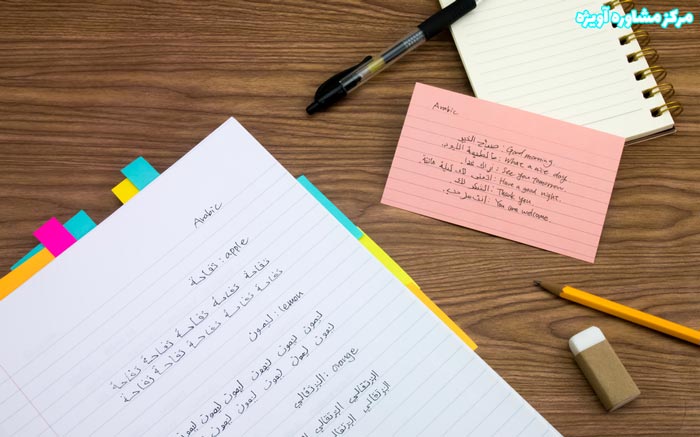 مرکز مشاوره آویژه
Arabic
صباح الخير : Good morning.
ما لطيفة اليوم : What a nice day.
نراك غدا. : See you tomorrow.
لك ليلة هانئة : Have a good night.
الشكر لك : Thank you.
: You are welcome.
Arabic
تفاحة : apple
تفاحة تفاحة تفاحة تفاحة تفاحة
تفاحة تفاحة تفاحة تفاحة تفاحة
ليمون : lemon
ليمون ليمون ليمون ليمون ليمون
ليمون ليمون ليمون ليمون ليمون
البرتقالي : orange
البرتقالي البرتقالي
البرتقالي